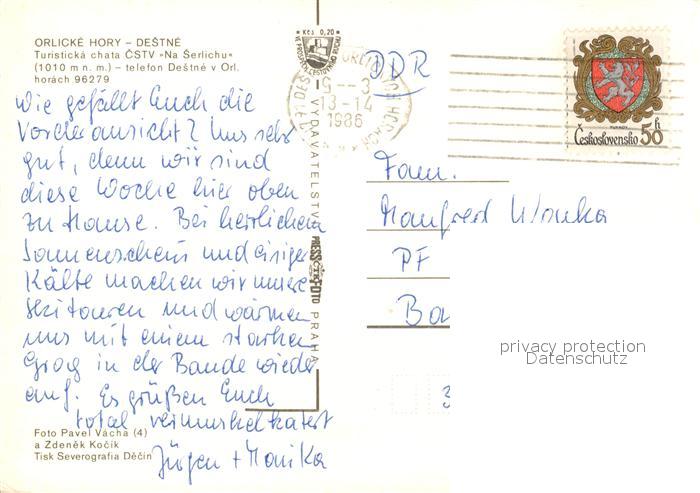 ORLICKÉ HORY – DEŠTNÉ
Turistická chata ČSTV »Na Šerlichu«
(1010 m n. m.) – telefon Deštné v Orl.
horách 96279
Wie gefällt Euch die
Vorderansicht? Uns sehr
gut, denn wir sind
diese Woche hier oben
zu Hause. Bei herrlichem
Sonnenschein und eisiger
Kälte machen wir unsere
Skitouren und wärmen
uns mit einem starken
Grog in der Baude wieder
auf. Es grüßen Euch
total
Jürgen + Monika
Foto Pavel Vácha (4)
a Zdeněk Kočík
Tisk Severografia Děčín
Kčs 0,20
VYDAVATELSTVÍ PRESSFOTO PRAHA
13-14
1986
DDR
Československo 50 h
Fam.
Manfred
PF
Ba
privacy protection
Datenschutz